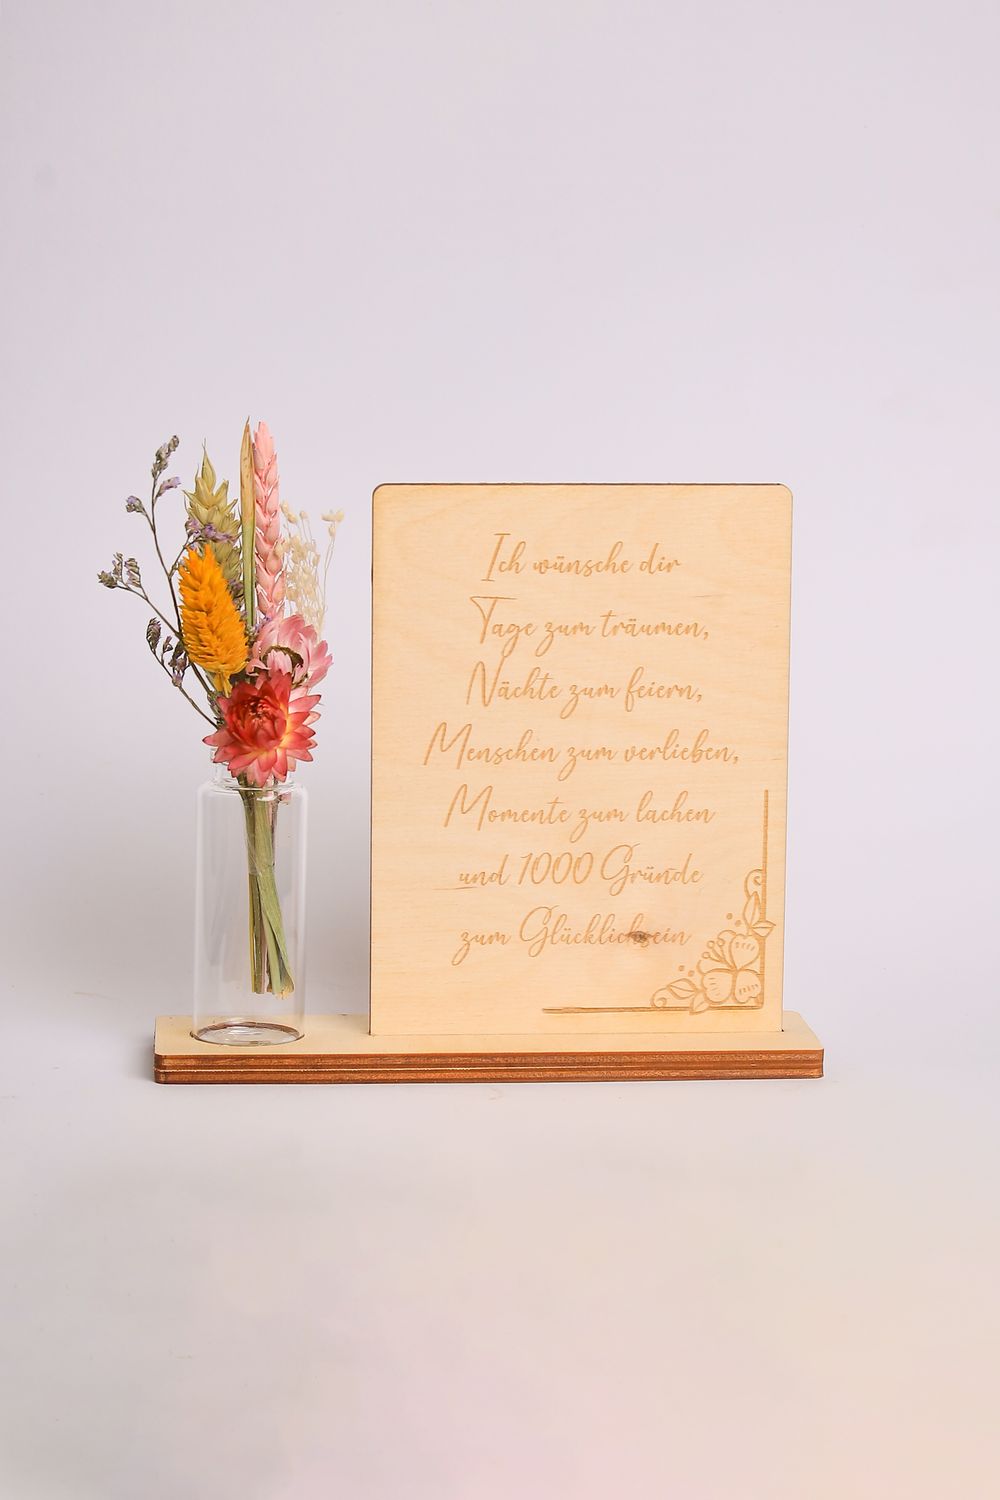 Ich wünsche dir
Tage zum träumen,
Nächte zum feiern,
Menschen zum verlieben,
Momente zum lachen
und 1000 Gründe
zum Glücklichsein